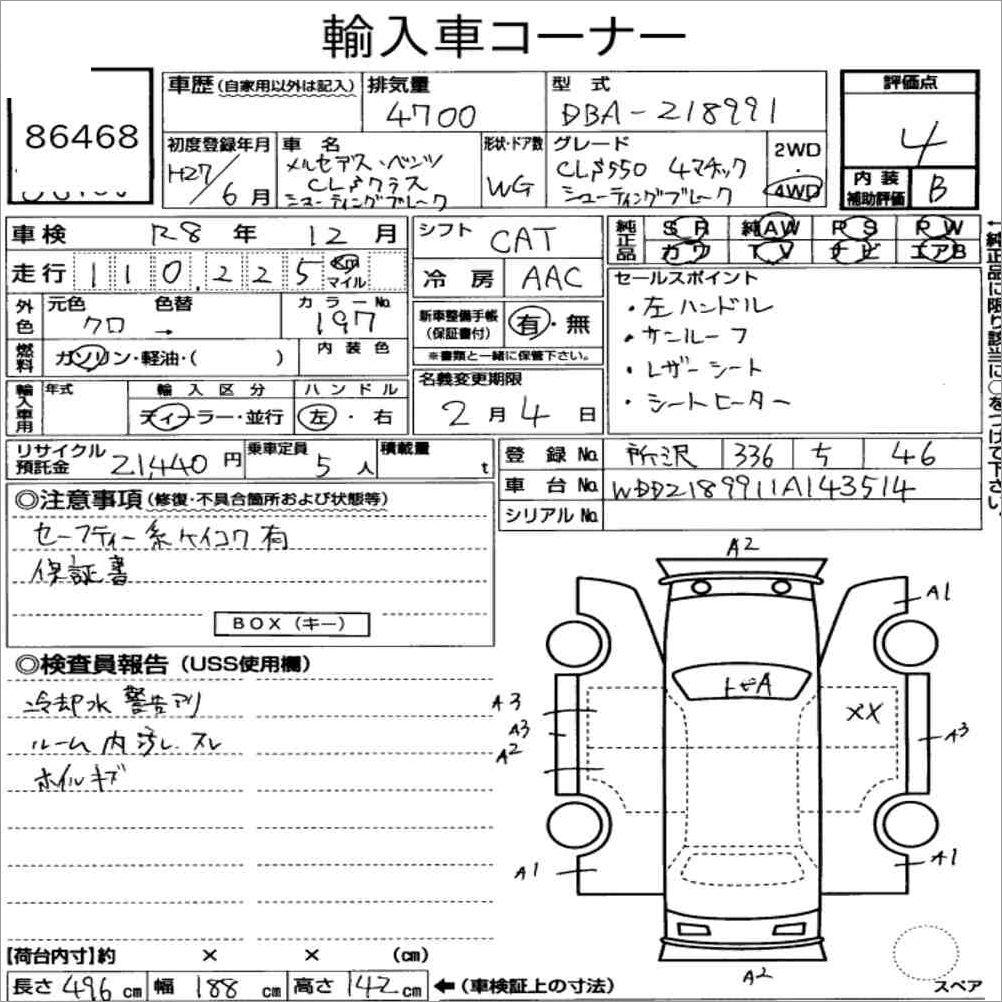 輸入車コーナー
86468
車歴(自家用以外は記入) 排気量 4700 型式 DBA-218991 評価点 4
初度登録年月 H27/6月 車名 メルセデス・ベンツ CLSクラス シューティングブレーク 形状・ドア数 WG グレード CLS550 4マチック シューティングブレーク 2WD・4WD 内装補助評価 B
車検 R8年 12月 シフト CAT 純正品 SR 純AW PS PW
カワ TV ナビ エアB
走行 110,225 Km マイル 冷房 AAC
外色 元色 クロ 色替 → カラーNo. 197
新車整備手帳(保証書付) 有・無
※書類と一緒に保管下さい。
燃料 ガソリン・軽油・( ) 内装色
セールスポイント
・左ハンドル
・サンルーフ
・レザーシート
・シートヒーター
←純正品に限り該当に○をつけて下さい。
輸入車用 年式 輸入区分 ディーラー・並行 ハンドル 左・右
名義変更期限 2月4日
リサイクル預託金 21,440円 乗車定員 5人 積載量 t
登録No. 所沢 336 ち 46
車台No. WDD2189911A143514
シリアルNo.
◎注意事項(修復・不具合箇所および状態等)
セーフティー系ケイコク有
保証書
BOX(キー)
◎検査員報告(USS使用欄)
冷却水 警告アリ
ルーム内汚レ スレ
ホイルキズ
A2
A1
トビA
A3
A3
A2
XX
A3
A1
A1
A2
スペア
【荷台内寸】約 × × (cm)
長さ 496 cm 幅 188 cm 高さ 142 cm ←(車検証上の寸法)